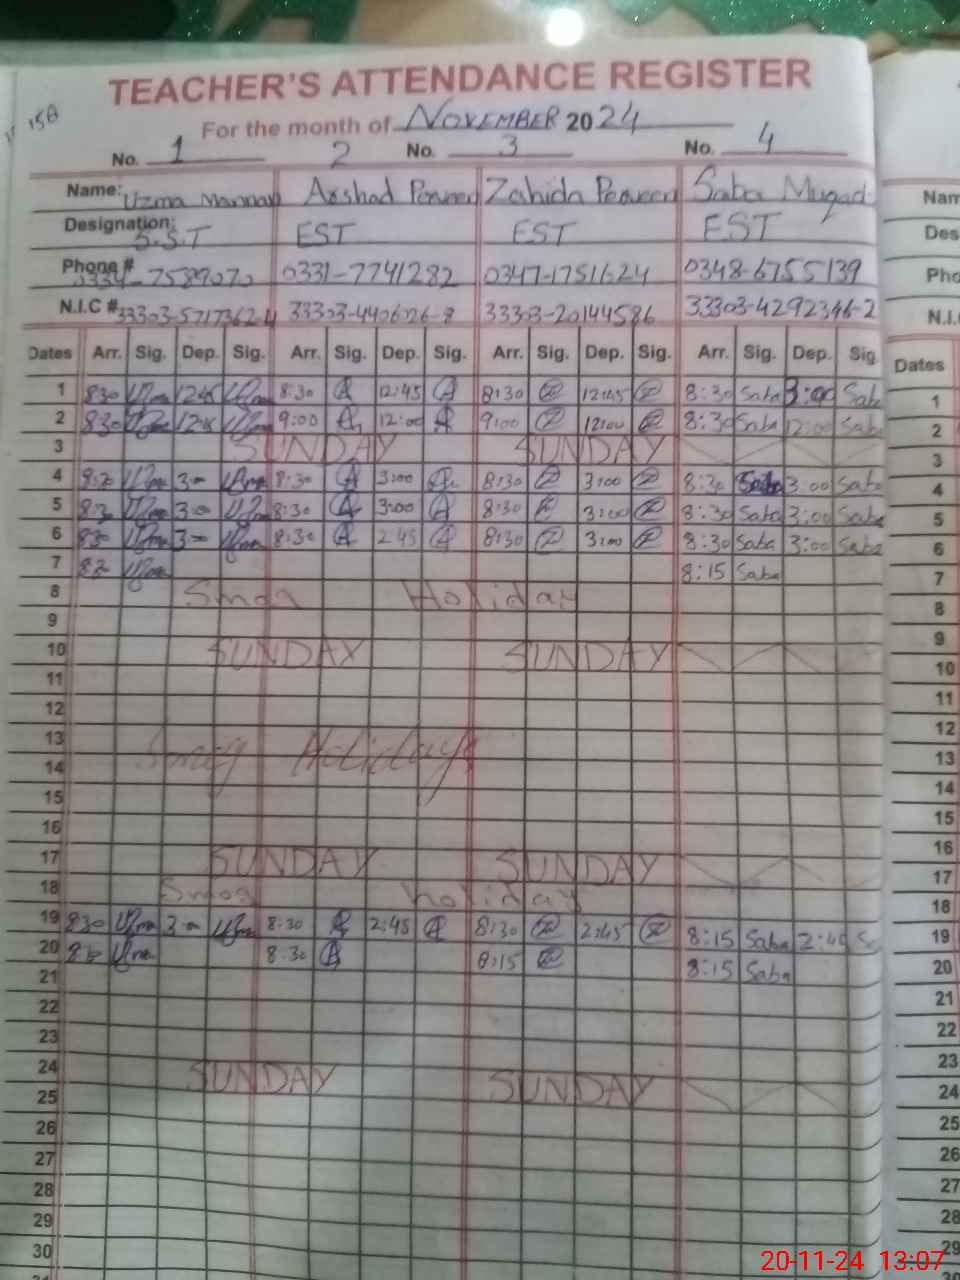 TEACHER'S ATTENDANCE REGISTER
158
For the month of NOVEMBER 2024
No. 1 2 No. 3 No. 4
Name: Uzma Mannan Arshad Perveen Zahida Perveen Saba Muqad
Designation: S.S.T EST EST EST
Phone # 0334-7589070 0331-7741282 0347-1751624 0348-6755139
N.I.C # 33303-4406126-8 33303-20144586 33303-4292346-2
Dates Arr. Sig. Dep. Sig. Arr. Sig. Dep. Sig. Arr. Sig. Dep. Sig. Arr. Sig. Dep. Sig.
1 830 12:45 8:30 12:45 8:30 12:45 8:30 Saba 3:00 Saba
2 830 9:00 12:00 9:00 12:00 8:30 Saba 12:00 Saba
3 SUNDAY SUNDAY
4 8:30 3:00 8:30 3:00 8:30 Saba 3:00 Saba
5 8:30 3:00 8:30 3:00 8:30 Saba 3:00 Saba
6 830 8:30 2 45 8:30 3:00 8:30 Saba 3:00 Saba
7 8:15 Saba
8 Smog Holiday
9
10 SUNDAY SUNDAY
11
12
13 Smog Holidays
14
15
16
17 SUNDAY SUNDAY
18 Smog holiday
19 830 8:30 2:45 8:30 2:45 8:15 Saba 2:40
20 8:30 8:15 8:15 Saba
21
22
23
24 SUNDAY SUNDAY
25
26
27
28
29
30
Dates
1
2
3
4
5
6
7
8
9
10
11
12
13
14
15
16
17
18
19
20
21
22
23
24
25
26
27
28
29
20-11-24 13:07